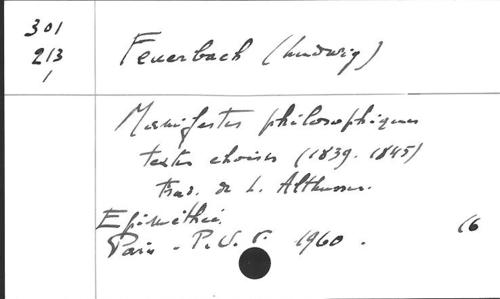 301
213
1
Feuerbach (Ludwig)
Manifestes philosophiques
textes choisis (1839-1845)
trad. de L. Althusser.
Epiméthée.
Paris - P.U.F. 1960.
16